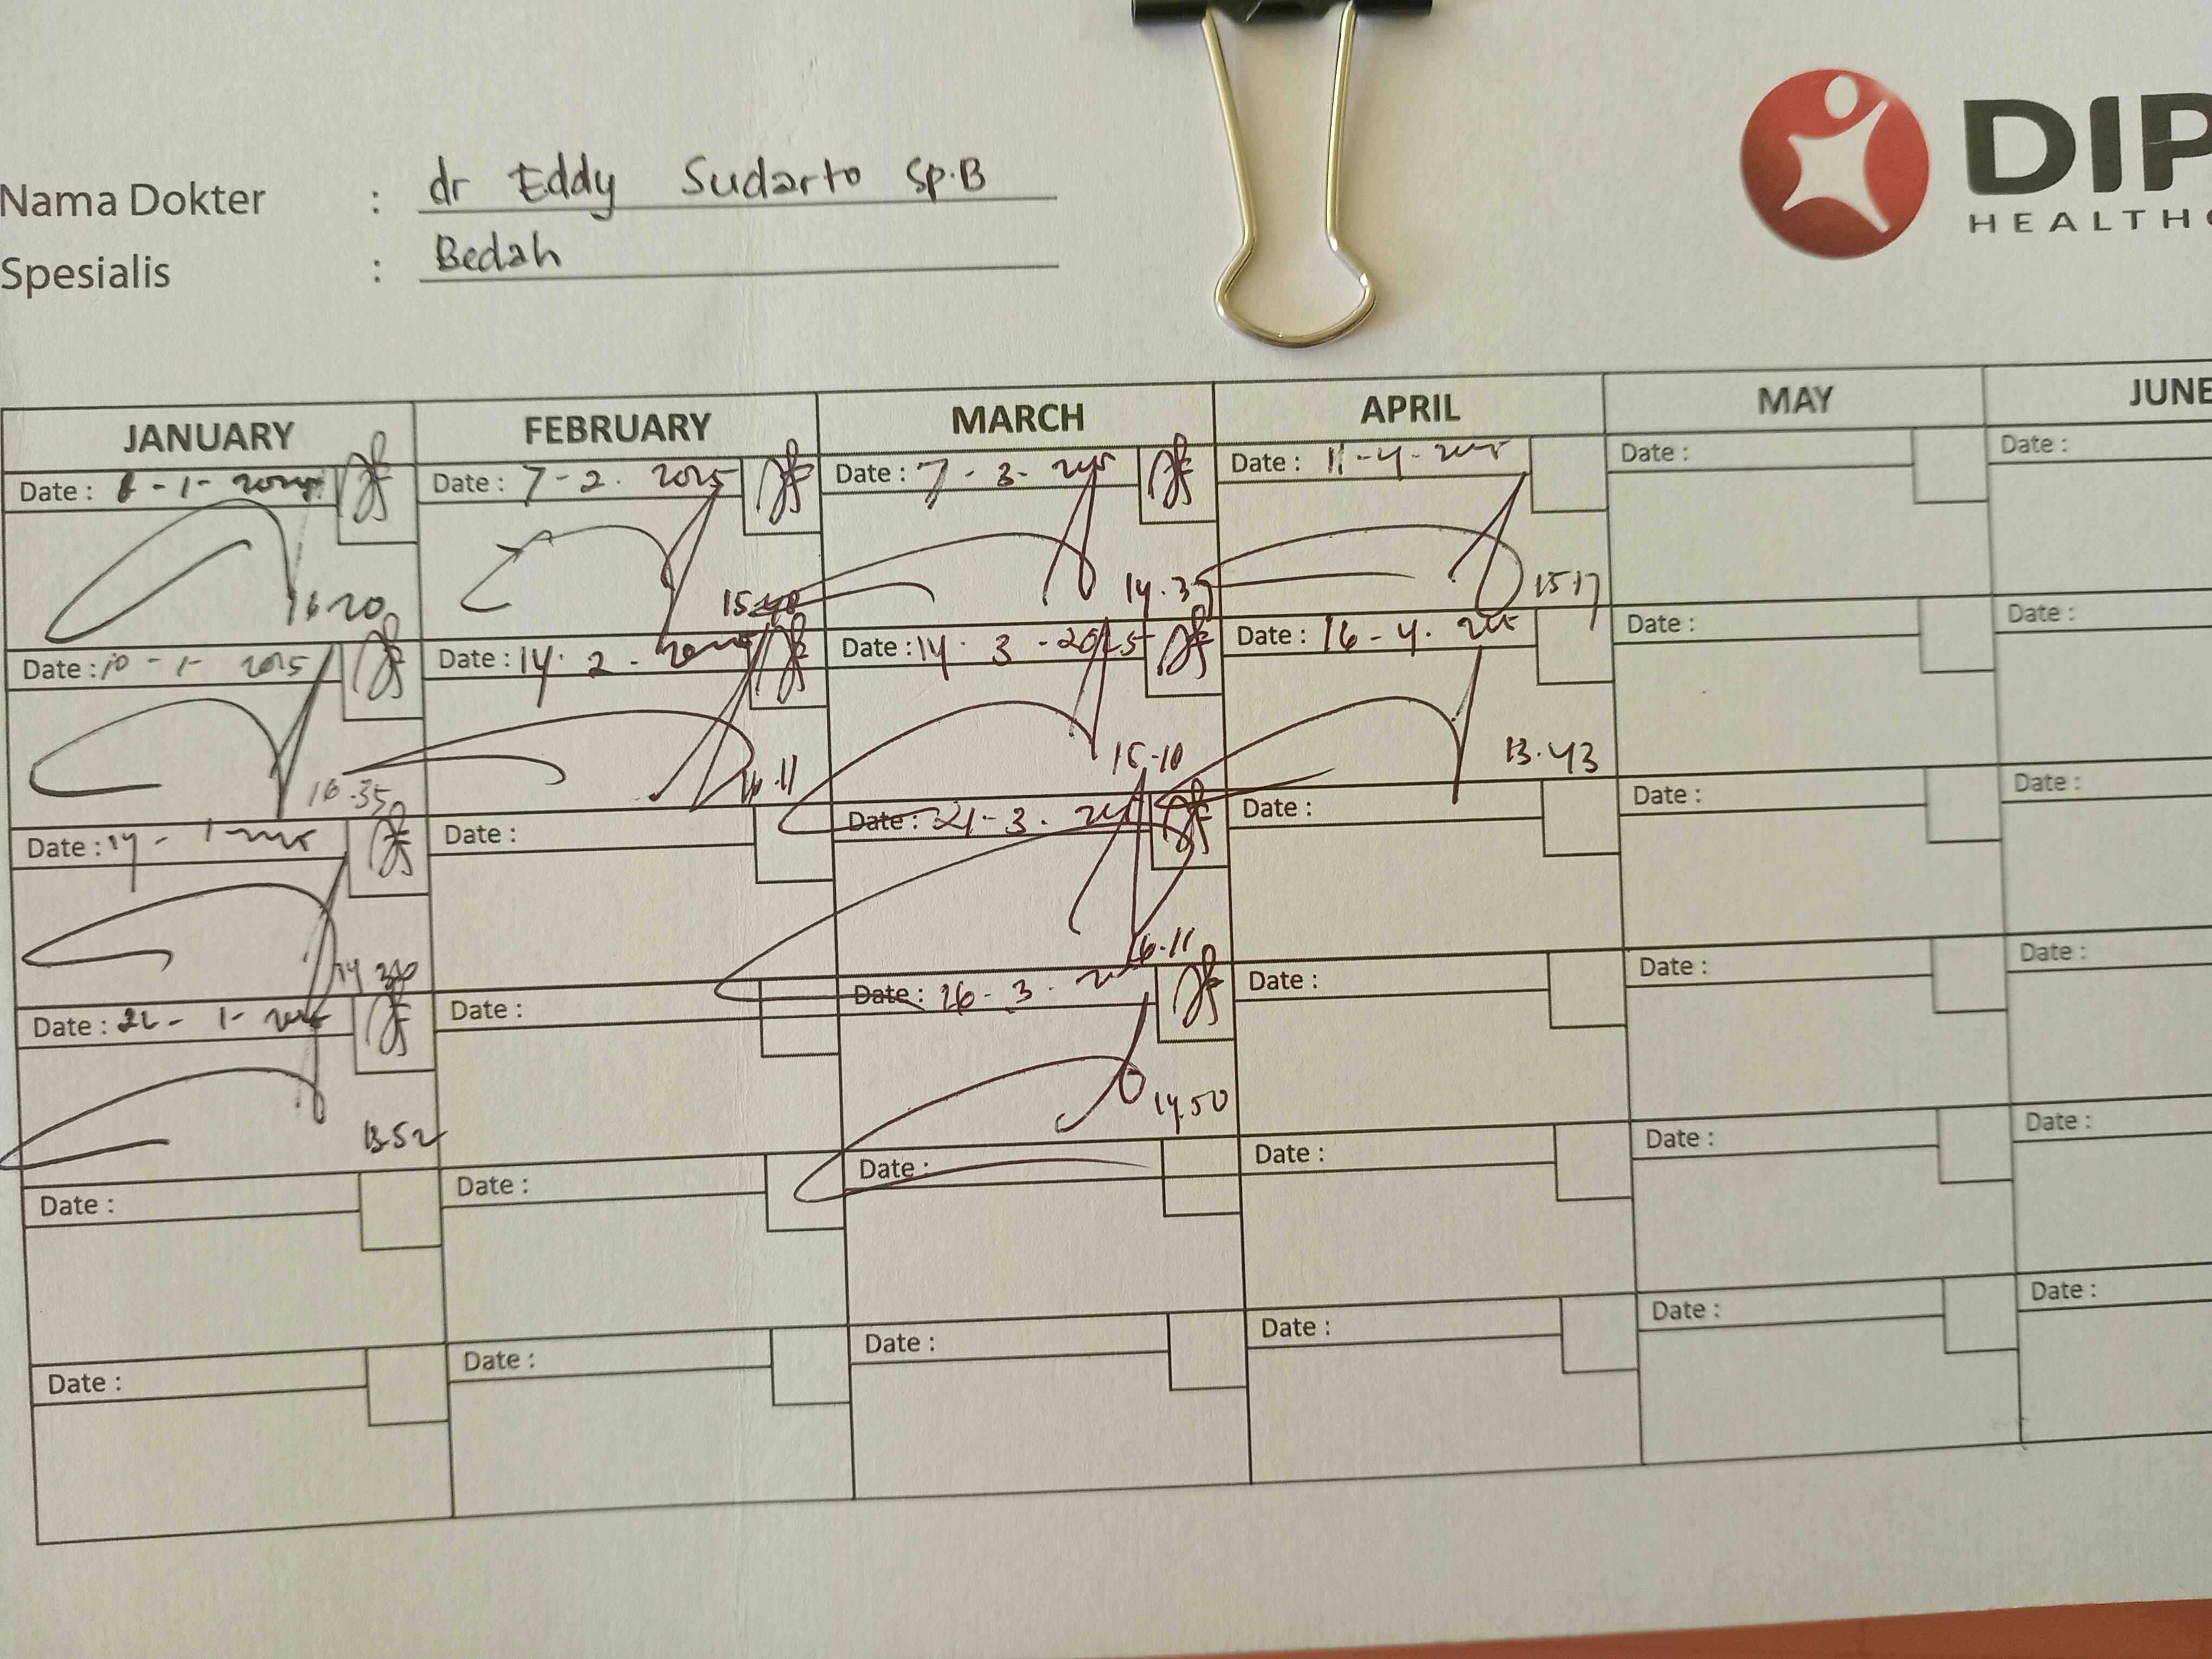 Nama Dokter : dr Eddy Sudarto Sp.B
Spesialis : Bedah
DIP
HEALTHC
JANUARY FEBRUARY MARCH APRIL MAY JUNE
Date : 8-1- Date : 7-2. 2025 Date : 7-3- Date : 11-4- Date : Date :
16 20 15 14.35 15 17
Date : 10-1- 2025 Date : 14. 2 - Date : 14. 3 -2025 Date : 16-4. Date : Date :
16.35 16.11 15.10 13.43
Date : 14 - 1 Date : Date : 21-3. Date : Date : Date :
14 16.11
Date : 22 - 1- Date : Date : 26-3. Date : Date : Date :
13.52 14.50
Date : Date : Date : Date : Date : Date :
Date : Date : Date : Date : Date : Date :